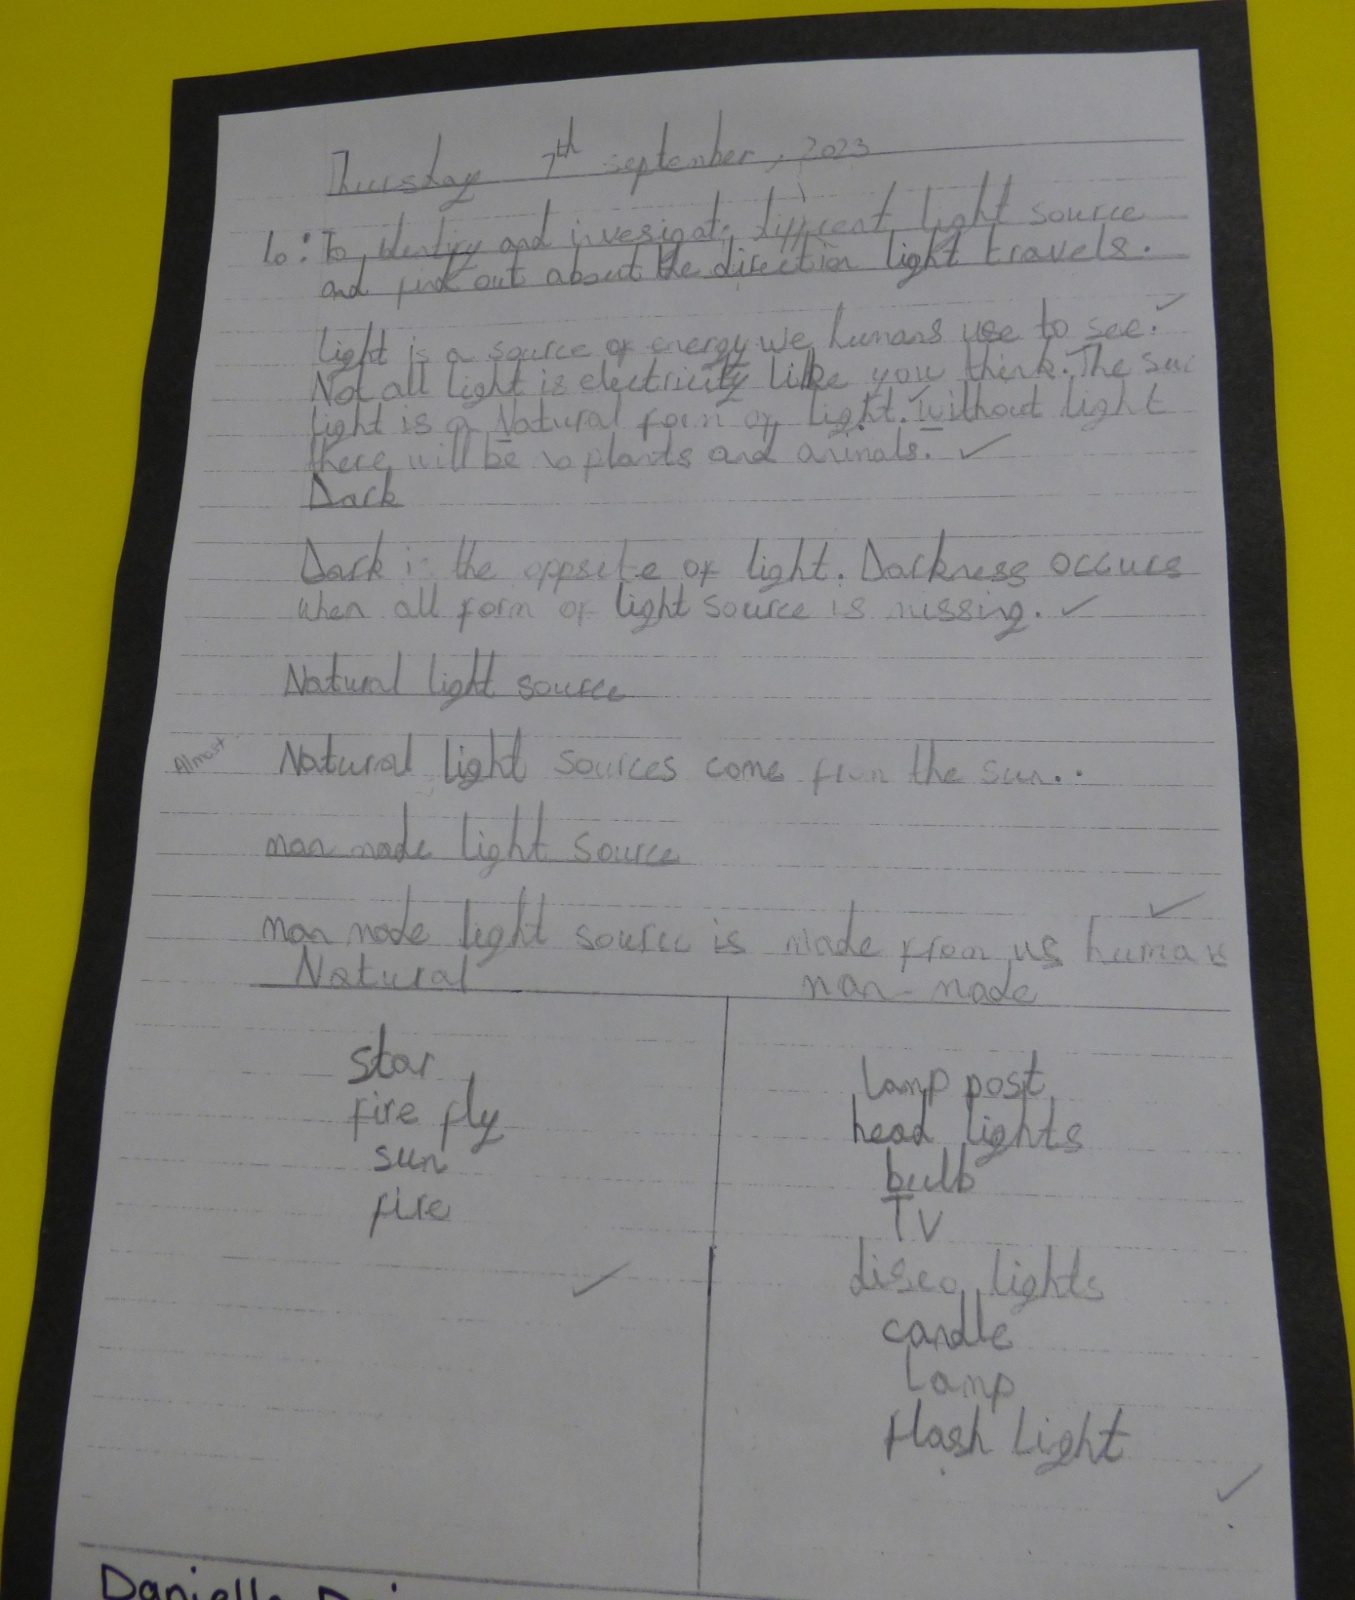 Thursday 7th september, 2023
Lo: To identify and invesigate different light source
and find out about the direction light travels.
light is a source of energy we humans use to see.
Not all light is electricity like you think. The sun
light is a Natural form of light. Without light
there will be no plants and animals.
Dark
Dark is the oppsite of light. Darkness occurs
when all form of light source is missing.
Natural light source
Almost
Natural light sources come from the sun..
man made light source
man made light source is made from us humans
Natural man-made
star
fire fly
sun
fire
lamp post
head lights
bulb
TV
disco lights
candle
lamp
flash light